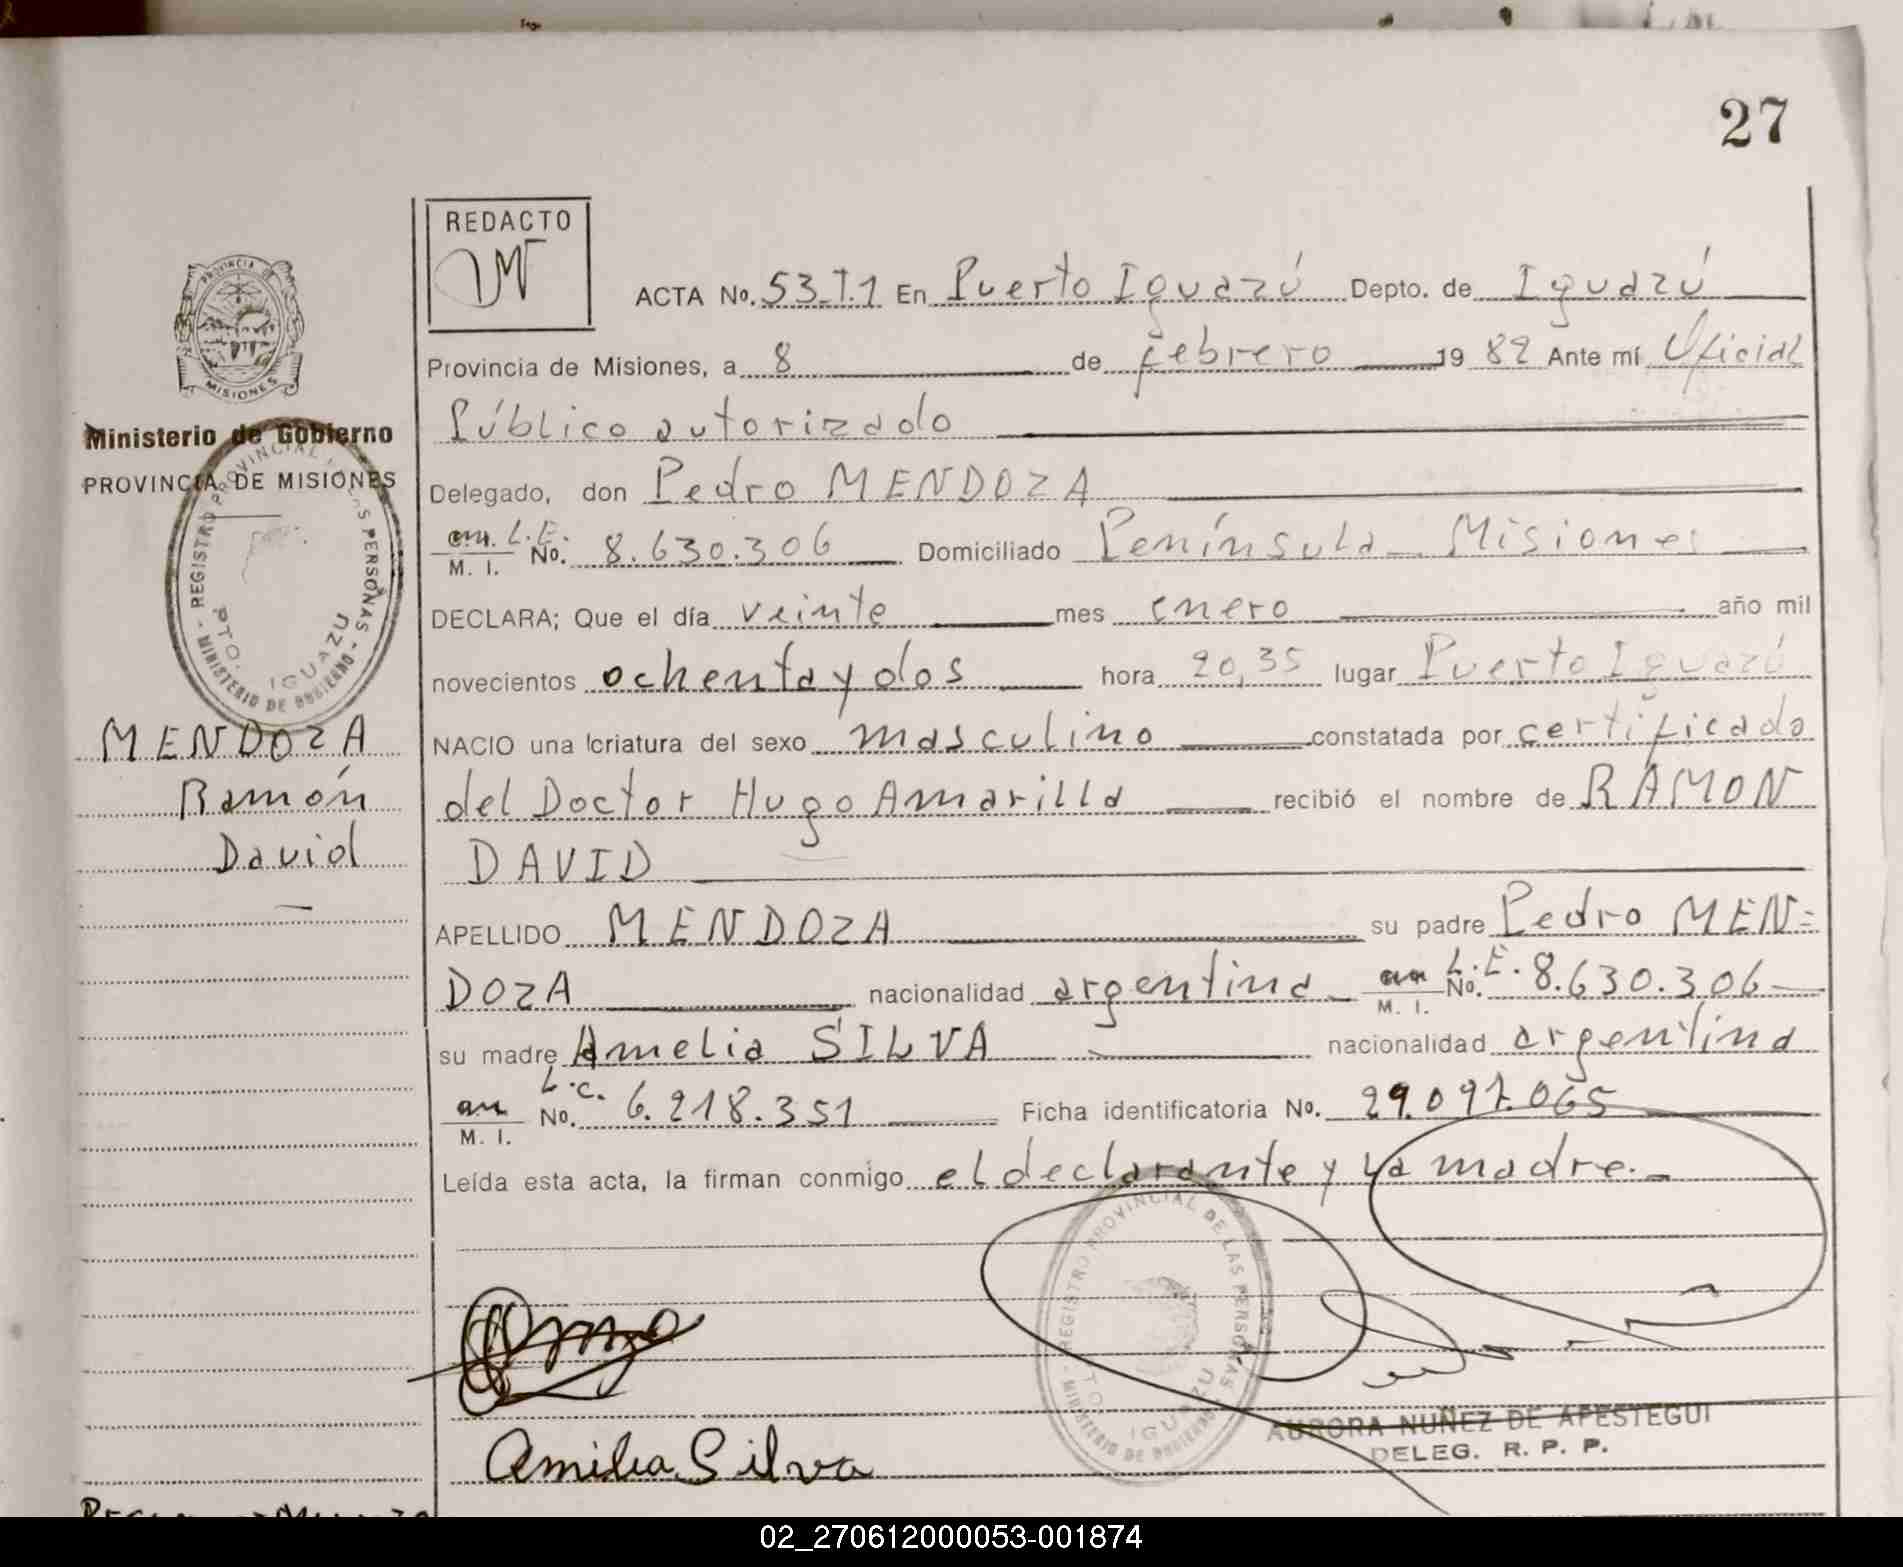 27
REDACTO
PROVINCIA DE
MISIONES
ACTA No. 53-T.1 En Puerto Iguazú Depto. de Iguazú
Provincia de Misiones, a 8 de febrero 19 82 Ante mí Oficial
Público autorizado
Ministerio de Gobierno
PROVINCIA DE MISIONES
Delegado, don Pedro MENDOZA
L.E.
M. I. No. 8.630.306 Domiciliado Península - Misiones
DECLARA; Que el día veinte mes enero año mil
novecientos ochenta y dos hora 20,35 lugar Puerto Iguazú
REGISTRO PROVINCIAL DE LAS PERSONAS - MINISTERIO DE GOBIERNO -
PTO. IGUAZU
MENDOZA
Ramón
David
NACIO una criatura del sexo masculino constatada por certificado
del Doctor Hugo Amarilla recibió el nombre de RAMON
DAVID
APELLIDO MENDOZA su padre Pedro MEN=
DOZA nacionalidad argentina - M. I. L.E. No. 8.630.306
su madre Amelia SILVA nacionalidad argentina
L.C.
M. I. No. 6.218.351 Ficha identificatoria No. 29.097.065
Leída esta acta, la firman conmigo el declarante y la madre.-
REGISTRO PROVINCIAL DE LAS PERSONAS - MINISTERIO DE GOBIERNO -
PTO. IGUAZU
Amilia Silva
AURORA NUÑEZ DE APESTEGUI
DELEG. R. P. P.
02_270612000053-001874